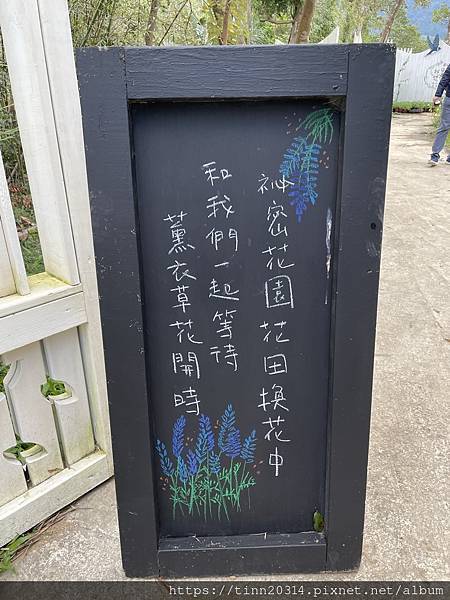 祕密花園花田換花中
和我們一起等待
薰衣草花開時
https://tinn20314.pixnet.net/album